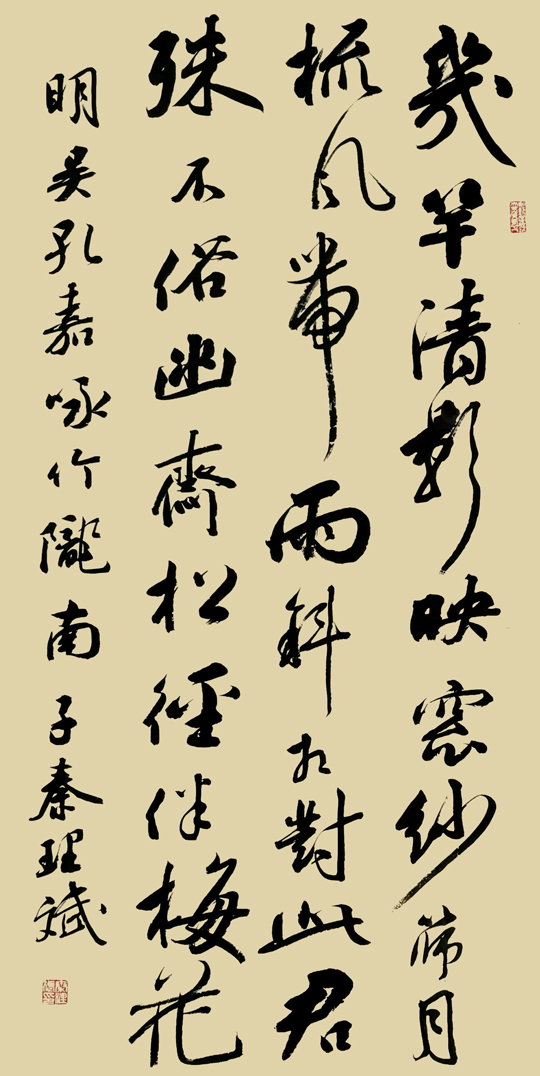 幾竿清影映窓紗篩月
梳風帶雨斜相對此君
殊不俗幽齋松徑伴梅花
明吳孔嘉咏竹隴南子秦理斌